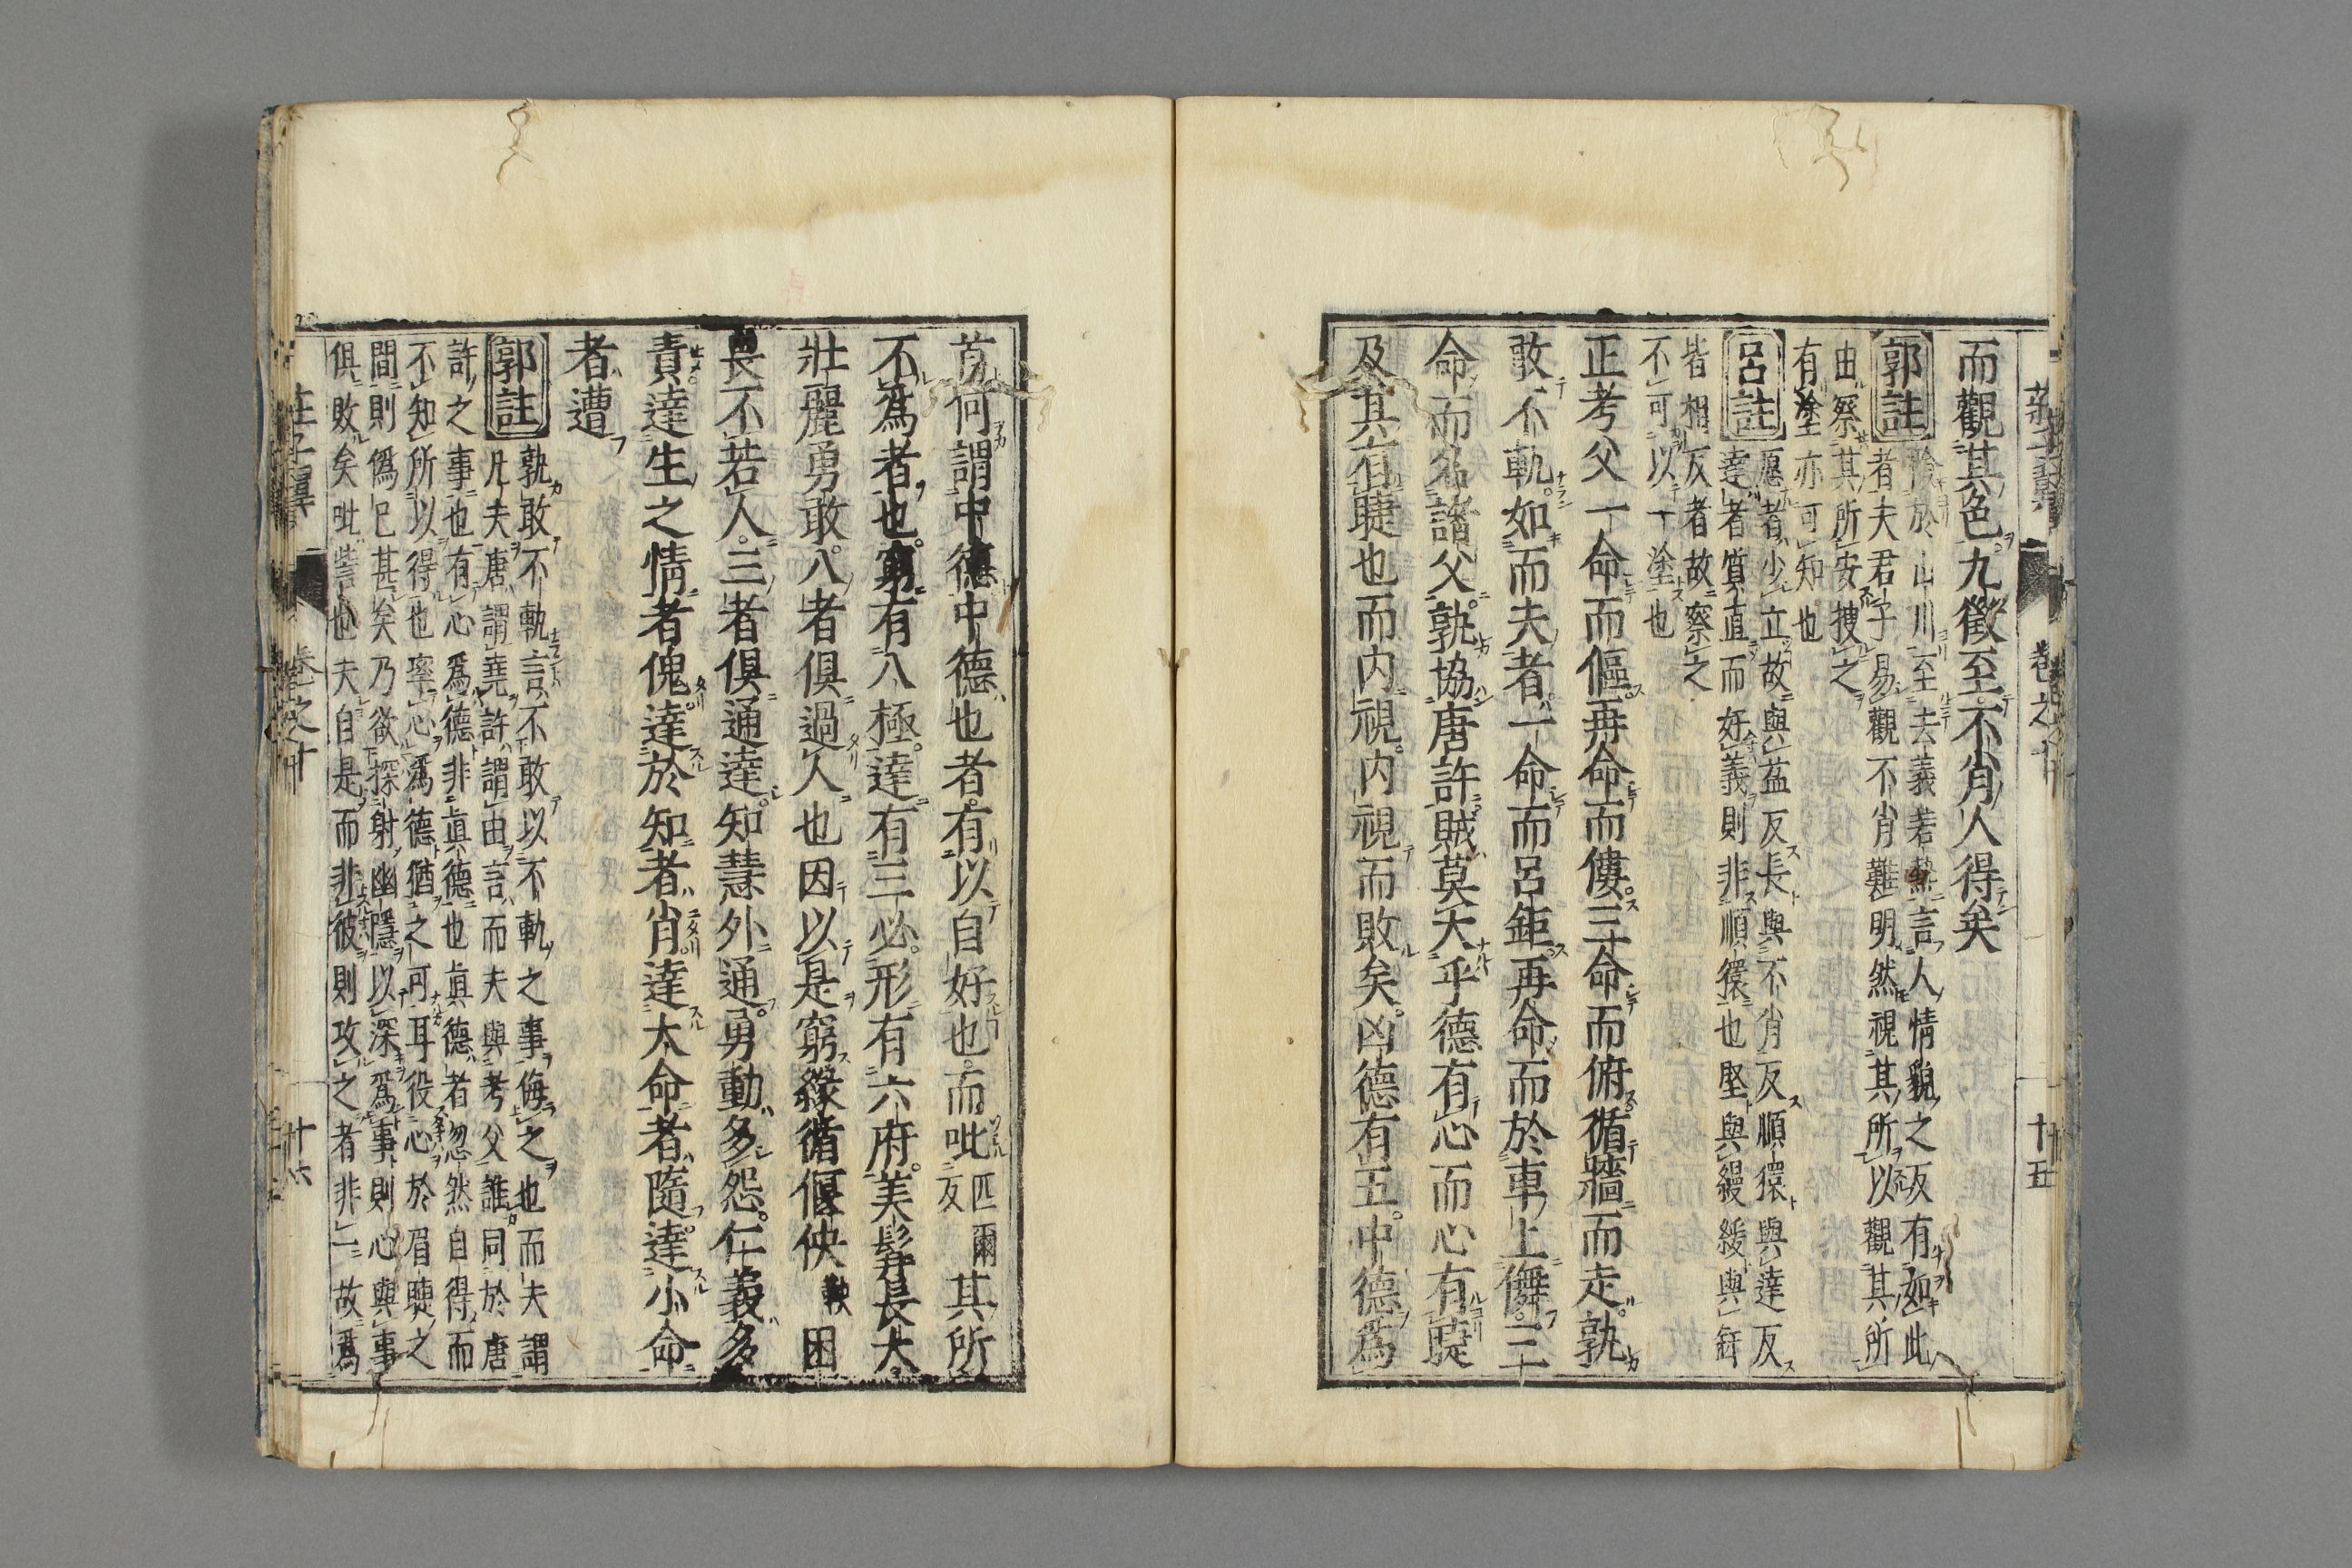 而觀其色九徵至不肖人得矣
郭註
險於山川至去義若熱言人情貌之反有如此
者夫君子易觀不肖難明然視其所以觀其所
由察其所安搜之
有塗亦可知也
呂註
愿者少立故與益反長與不肖反順懁與達反
達者質直而好義則非順懁也堅與縵緩與釬
皆相反者故察之
不可以一塗也
正考父一命而傴再命而僂三命而俯循牆而走孰
敢不軌如而夫者一命而呂鉅再命而於車上儛三
命而名諸父孰協唐許賊莫大乎德有心而心有睫
及其有睫也而内視内視而敗矣凶德有五中德爲
首何謂中德中德也者有以自好也而吡匹爾反其所
不爲者也窮有八極達有三必形有六府美髯長大
壯麗勇敢八者俱過人也因以是窮緣循偃佒鞅困
畏不若人三者俱通達知慧外通勇動多怨仁義多
責達生之情者傀達於知者肖達大命者隨達小命
者遭
郭註
孰敢不軌言不敢以不軌之事侮之也而夫謂
凡夫唐謂堯許謂由言而夫與考父誰同於唐
許之事也有心爲德非眞德也眞德者忽然自得而
不知所以得也率心爲德猶之可耳役心於眉睫之
間則僞已甚矣乃欲探射幽隱以深爲事則心與事
俱敗矣吡訾也夫自是而非彼則攻之者非一故爲
卷之十
十五
卷之十
十六